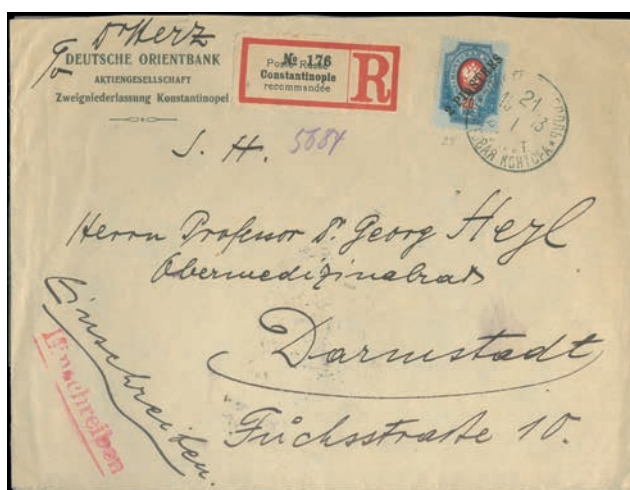 Dr Herz
DEUTSCHE ORIENTBANK
AKTIENGESELLSCHAFT
Zweigniederlassung Konstantinopel
№ 176
Poste Russe
Constantinople
recommandée
R
2 PIASTRES
20
21
1 13
КОНТОРА
25
S. H. 5684
Herrn Professor Dr. Georg
Obermedizinalrat
Darmstadt
Fuchsstraße 10.
Einschreiben.
Einschreiben